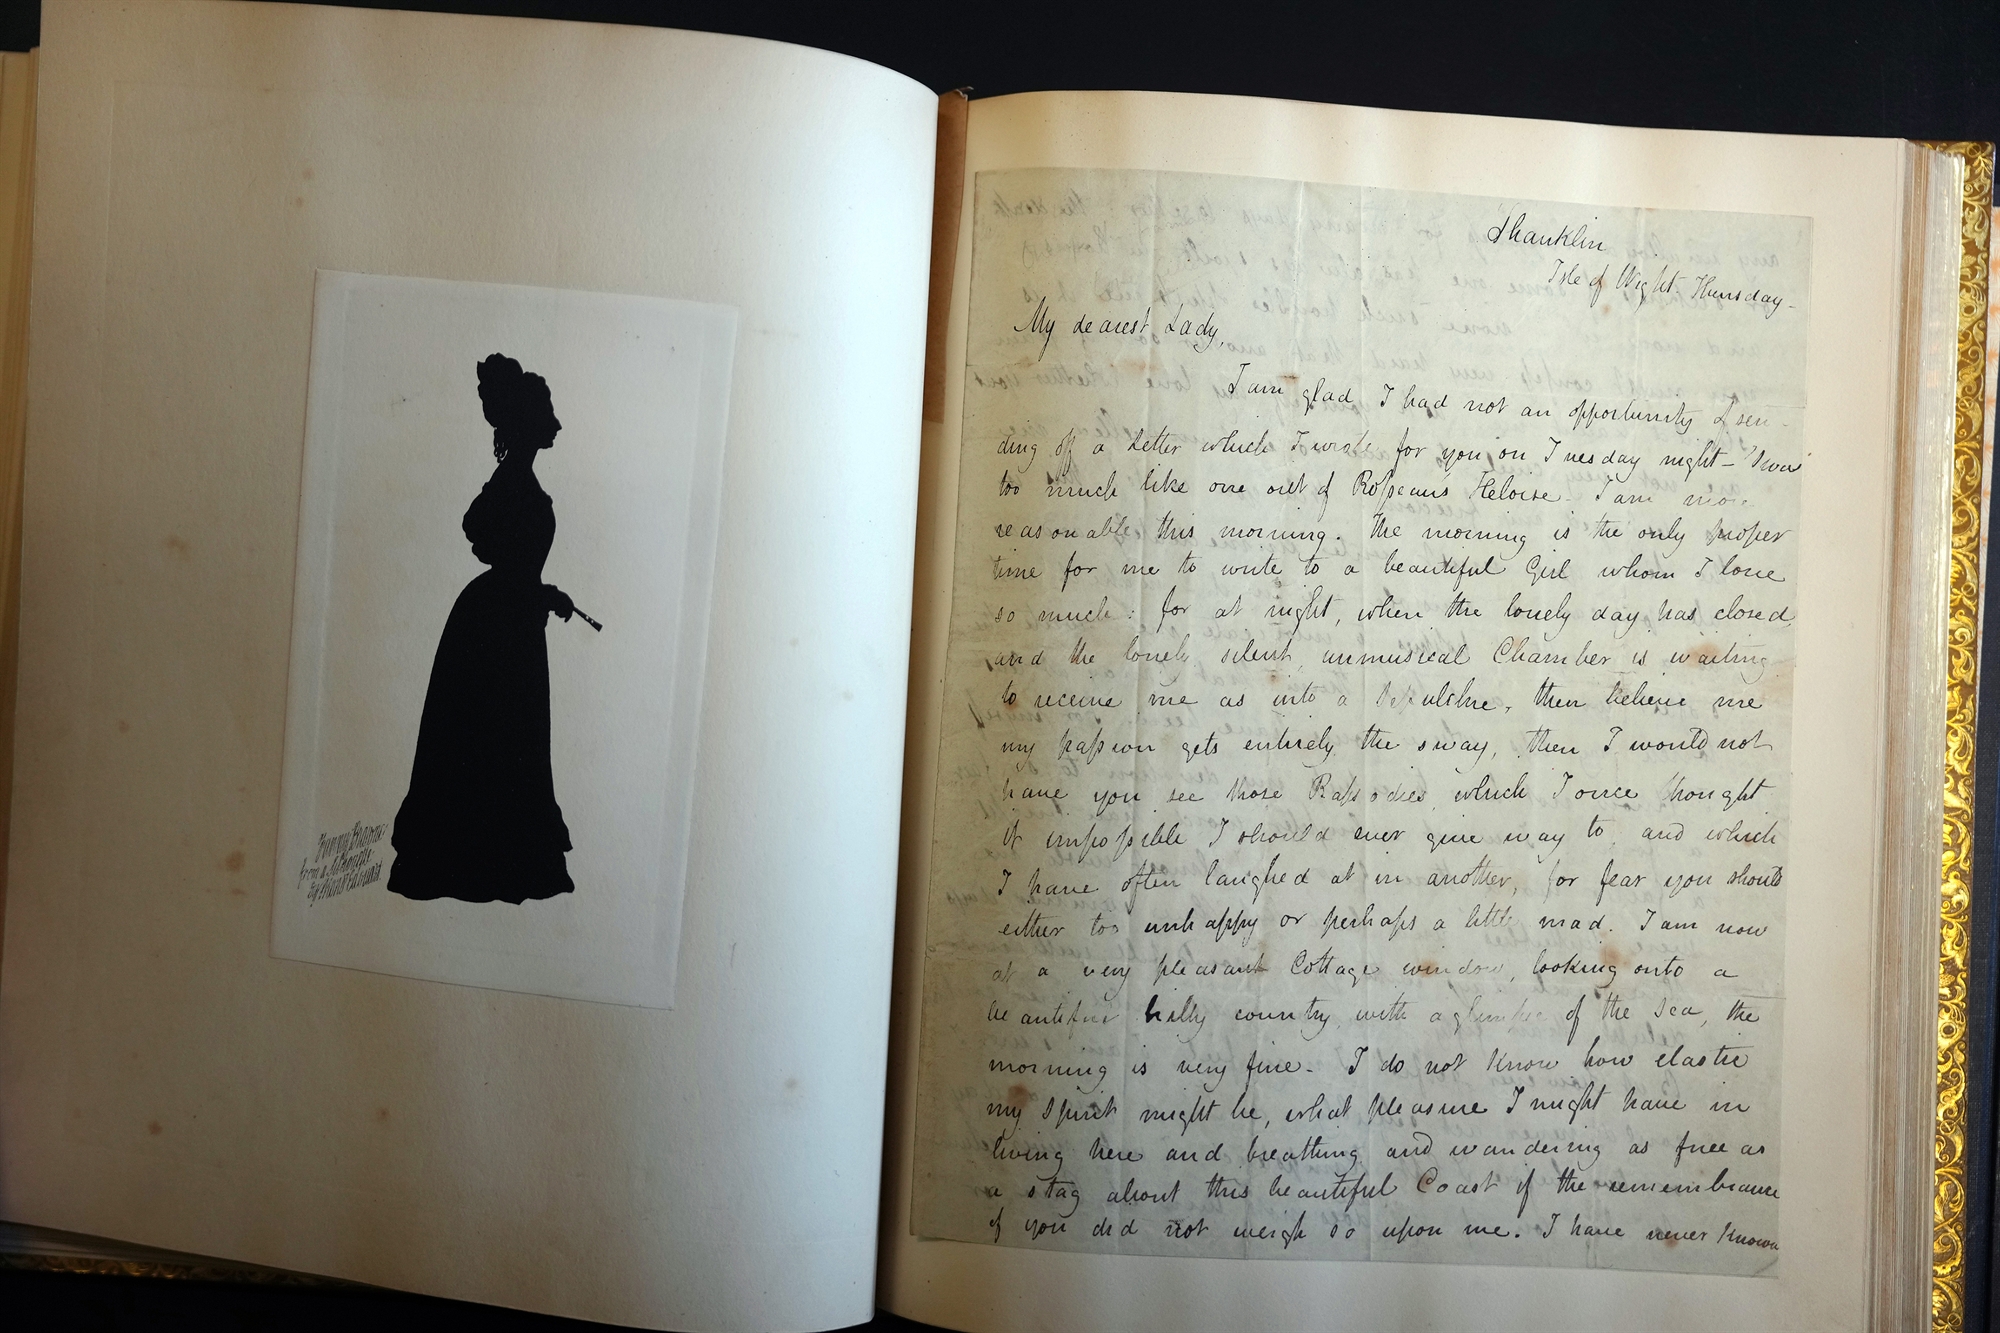 Fanny Brawne
from a Silhouette
by Mons.r Edouart
Shanklin
Isle of Wight Thursday -
My dearest Lady,
I am glad I had not an opportunity of sen-
ding off a Letter which I wrote for you on Tuesday night - 'twas
too much like one out of Roſseau's Heloise - I am more
reasonable this morning. The morning is the only proper
time for me to write to a beautiful Girl whom I love
so much: for at night, when the lonely day has closed,
and the lonely silent, unmusical Chamber is waiting
to receive me as into a Sepulchre, then believe me
my paſsion gets entirely the sway, then I would not
have you see those Rapsodies which I once thought
it impoſsible I should ever give way to, and which
I have often laughed at in another, for fear you should
either too unhappy or perhaps a little mad. I am now
at a very pleasant Cottage window, looking onto a
beautiful hilly country, with a glimpse of the sea, the
morning is very fine. I do not know how elastic
my spirit might be, what pleasure I might have in
living here and breathing and wandering as free as
a stag about this beautiful Coast if the remembrance
of you did not weigh so upon me. I have never known